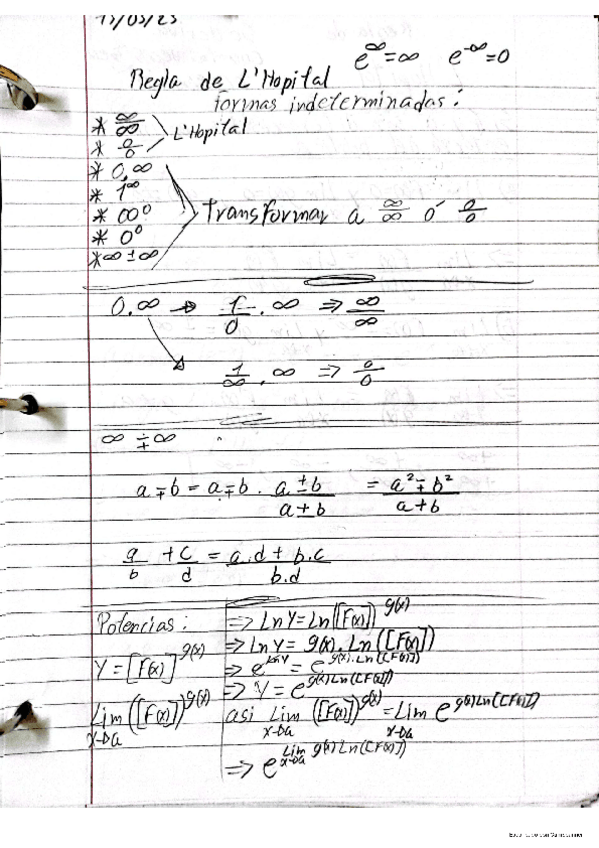 13/05/23
e^∞ = ∞   e^-∞ = 0
Regla de L'Hopital
formas indeterminadas:
* ∞/∞
* 0/0   L'Hopital
* 0.∞
* 1^∞
* ∞^0   Transformar a ∞/∞ ó 0/0
* 0^0
* ∞ ± ∞
0.∞ → 1/0 . ∞ ⇒ ∞/∞
1/∞ . ∞ ⇒ 0/0
∞ ∓ ∞
a ∓ b = a ∓ b . (a ± b)/(a ± b) = (a² ∓ b²)/(a ± b)
a/b + c/d = (a.d + b.c)/(b.d)
Potencias:
Y = [F(x)]^g(x)
Lim x→a ([F(x)])^g(x)
⇒ Ln Y = Ln([F(x)])^g(x)
⇒ Ln Y = g(x). Ln([F(x)])
⇒ e^LnY = e^g(x).Ln([F(x)])
⇒ Y = e^g(x)Ln([F(x)])
asi Lim x→a ([F(x)])^g(x) = Lim x→a e^g(x)Ln([F(x)])
⇒ e^Lim x→a g(x)Ln([F(x)])